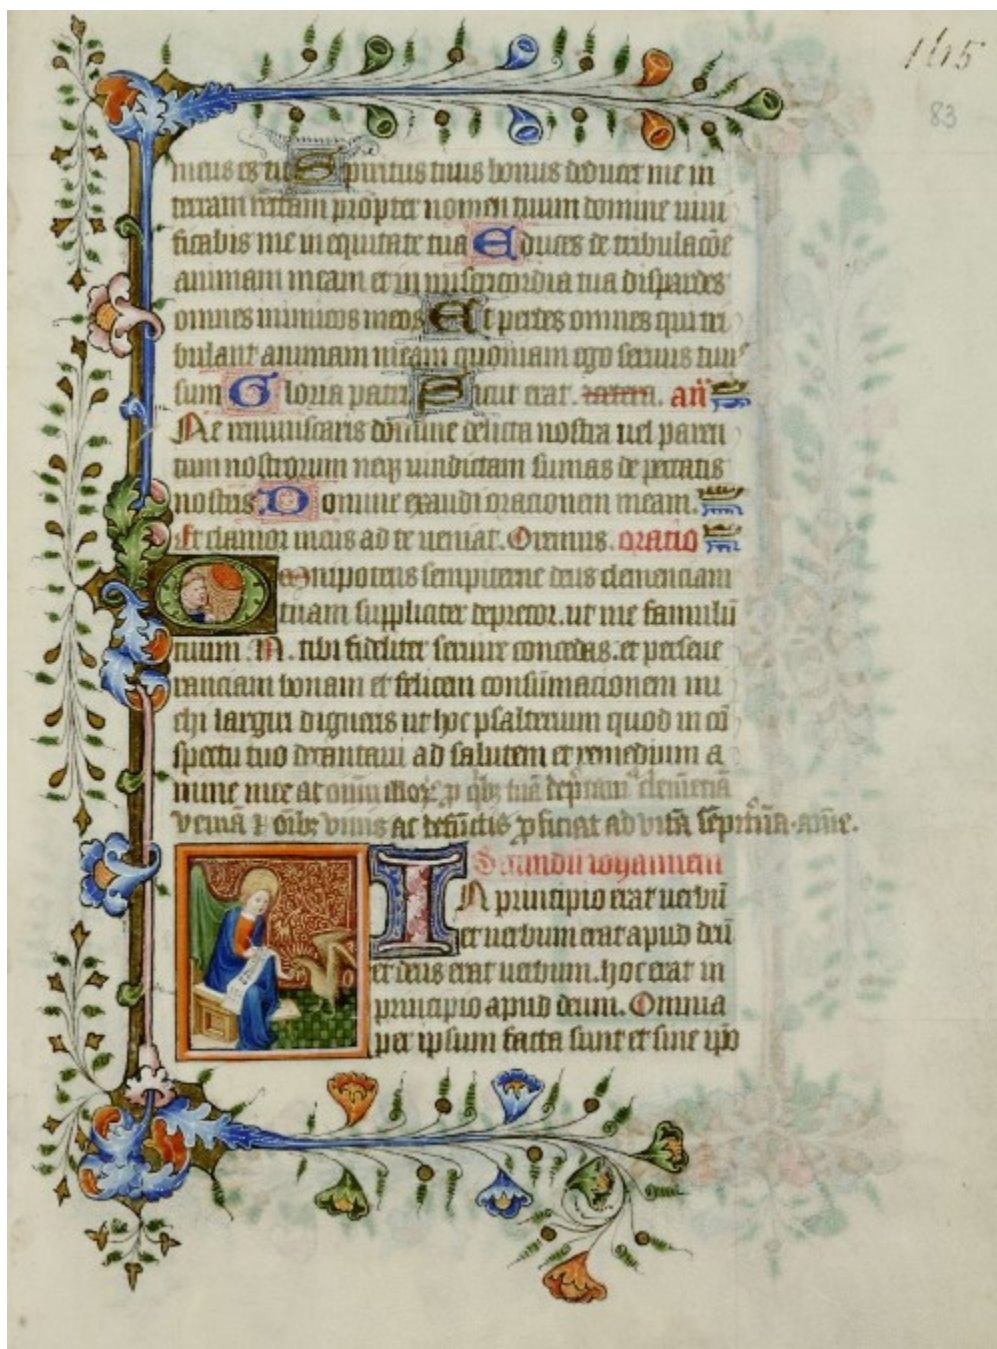 145
83
meus es tu Spiritus tuus bonus deducet me in
terram rectam propter nomen tuum domine uiui
ficabis me in equitate tua Educes de tribulacõe
animam meam et in misericordia tua dispardes
omnes inimicos meos Et perdes omnes qui tri
bulant animam meam quoniam ego seruus tuus
sum Gloria patri Sicut erat. añ
Ne reminiscaris domine delicta nostra uel paren
tum nostrorum neqz uindictam sumas de peccatis
nostris Domine exaudi orationem meam.
Et clamor meus ad te ueniat. Oremus. oratio
Omnipotens sempiterne deus clemenciam
tuam suppliciter deprecor. ut me famulũ
tuum. N. tibi fideliter seruire concedas. et perseue
ranciam bonam et felicem consũmacionem mi
chi largiri digneris ut hoc psalterium quod in cõ
spectu tuo decantaui ad salutem et remedium a
nime mee ac
veniã oĩbz viuis ac defũctis ꝓficiat ad vitã amẽ.
Secundũ iohannem
IN principio erat uerbũ
et uerbum erat apud deũ
et deus erat uerbum. hoc erat in
principio apud deum. Omnia
per ipsum facta sunt et sine ipõ